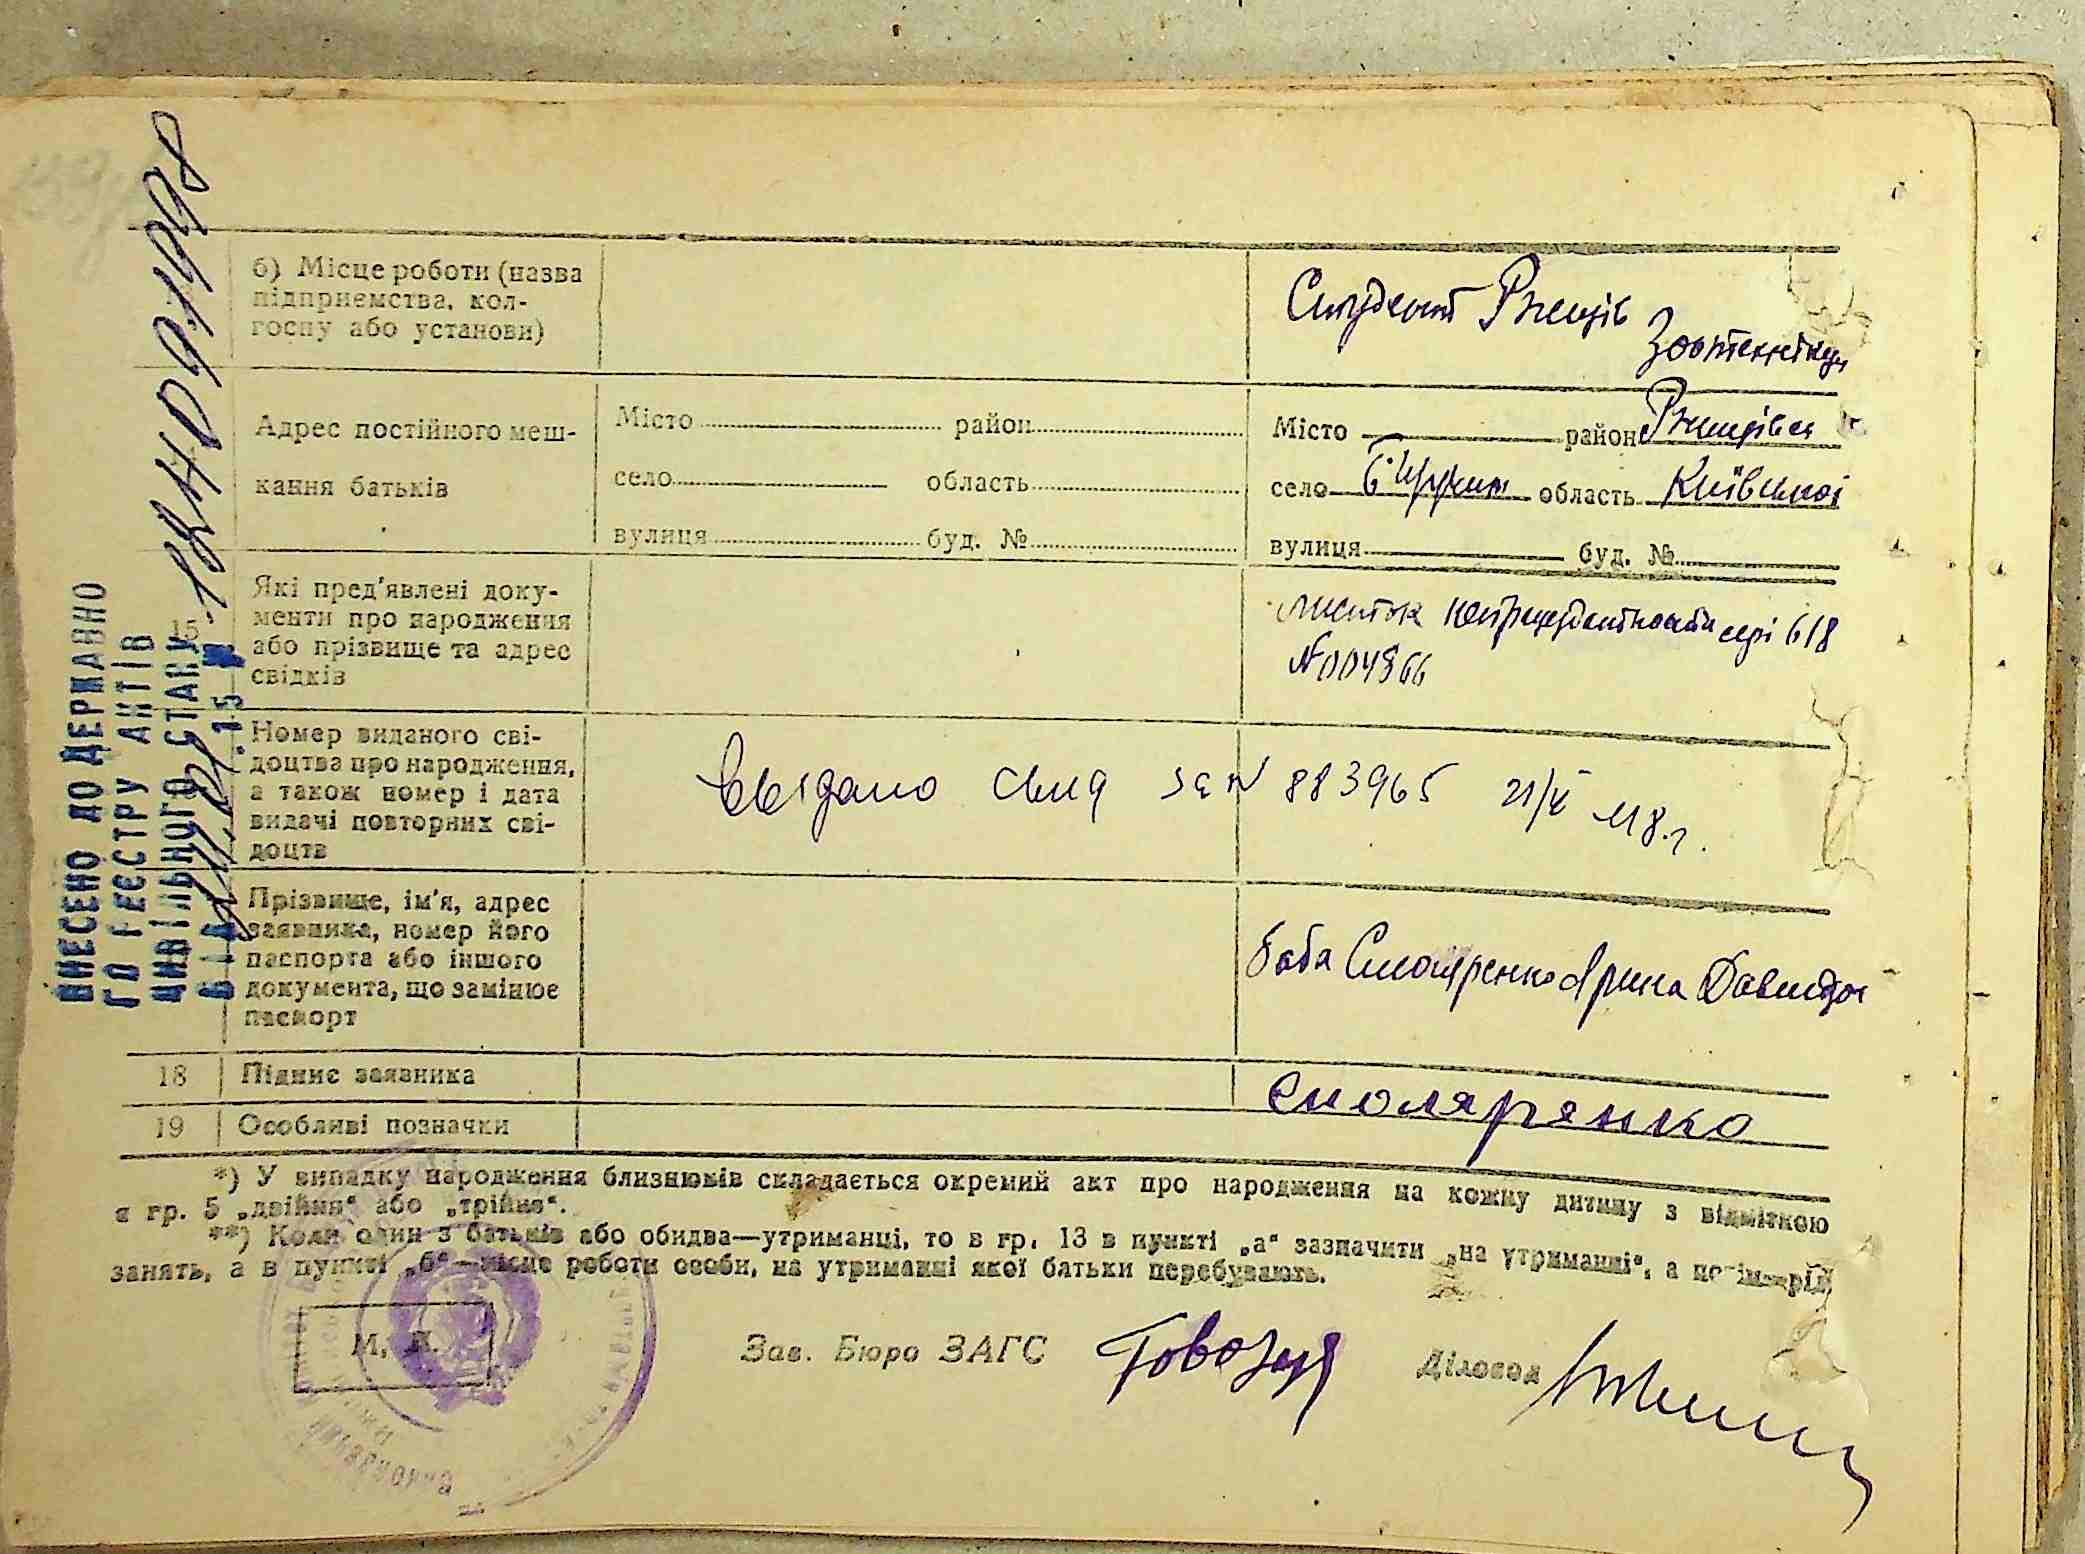 ВНЕСЕНО ДО ДЕРЖАВНО
ГО РЕЄСТРУ АКТІВ
ЦИВІЛЬНОГО СТАНУ
б) Місце роботи (назва
підприємства, кол-
госпу або установи)
Студент Ржищів
Зоотехнікум
Адрес постійного меш-
кання батьків
Місто район
село область
вулиця буд. №
Місто район Ржищівск
село область Київської
вулиця буд. №
15
Які пред'явлені доку-
менти про народження
або прізвище та адрес
свідків
листок сері 618
№004866
Номер виданого сві-
доцтва про народження,
а також номер і дата
видачі повторних сві-
доцтв
Выдано за N 883965 21/
Прізвище, ім'я, адрес
заявника, номер його
паспорта або іншого
документа, що замінює
паспорт
баба Столяренко Арина Давидов
18 Підпис заявника
Столярянко
19 Особливі позначки
*) У випадку народження близнюків складається окремий акт про народження на кожну дитину з відміткою
в гр. 5 „двійня“ або „трійня“.
**) Коли один з батьків або обидва—утриманці, то в гр. 13 в пункті „а“ зазначити „на утриманні“, а
занять, а в пункті „б“—місце роботи особи, на утриманні якої батьки перебувають.
М. П.
Зав. Бюро ЗАГС
Діловод